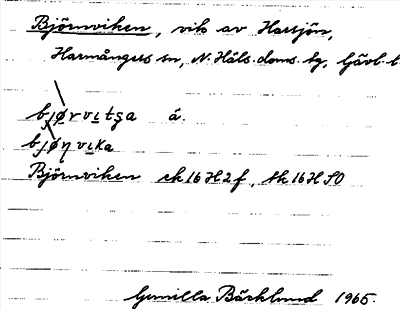 Björnviken, vik av Hassjön,
Harmångers sn, N. Häls. doms. tg, Gävl. l
bjørvitsa á.
bjøηvika
Björnviken ek 16 H 2 f, tk 16 H SO
Gunilla Bäcklund 1965.